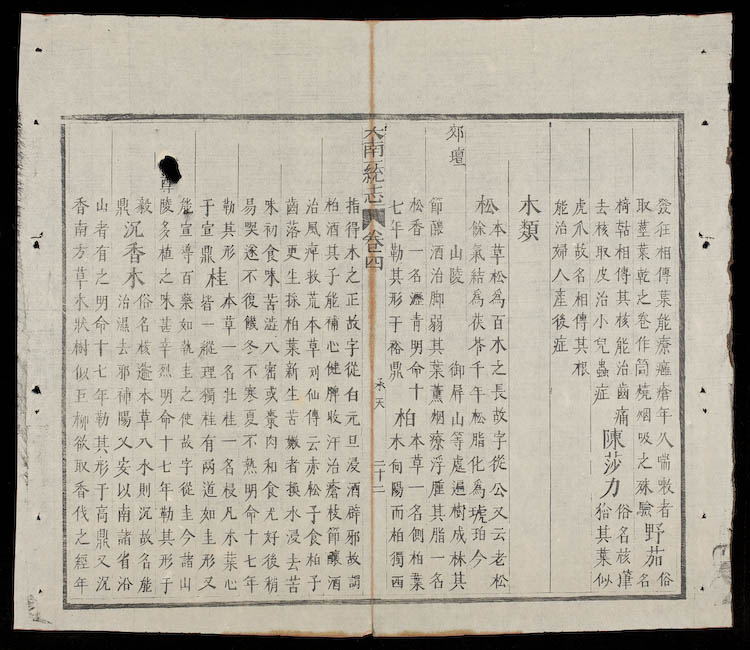 發狂相傳葉能療癰瘡年久喘嗽者野茄俗名
取莖葉乾之卷作筒燒烟吸之殊驗
椅𩨗相傳其核能治齒痛陳莎力俗名核
去核取皮治小兒蟲症其葉似
虎爪故名相傳其根
能治婦人產後症
木類
松本草松為百木之長故字從公又云老松
餘氣結為茯苓千年松脂化為琥珀今
郊壇
山陵 御屏山等處遍樹成林其
節釀酒治脚弱其葉薰烟療浮腫其脂一名
松香一名瀝青明命十柏本草一名側柏葉
七年勒其形于裕鼎木向陽而柏獨西
大南一統志 卷四 承天 二十二
指得木之正故字從白元旦浸酒辟邪故謂
柏酒其子能補心健脾收汗治瘡枝節釀酒
治風痺救荒本草列仙傳云赤松子食柏子
齒落更生採柏葉新生苦嫩者換水浸去苦
味初食味苦澁入蜜或棗肉和食尤好後稍
易喫遂不復饑冬不寒夏不熱明命十七年
勒其形桂本草一名牡桂一名梫凡木葉心
于宣鼎皆一縱理獨桂有两道如圭形又
能宣導百藥如執圭之使故字從圭今諸山
陵多植之味甚辛烈明命十七年勒其形于
毅鼎沉香木俗名核本草入水則沉故名能
治濕去邪補陽又安以南諸省沿
山者有之明命十七年勒其形于高鼎又沉
香南方草木狀樹似巨柳欲取香伐之經年